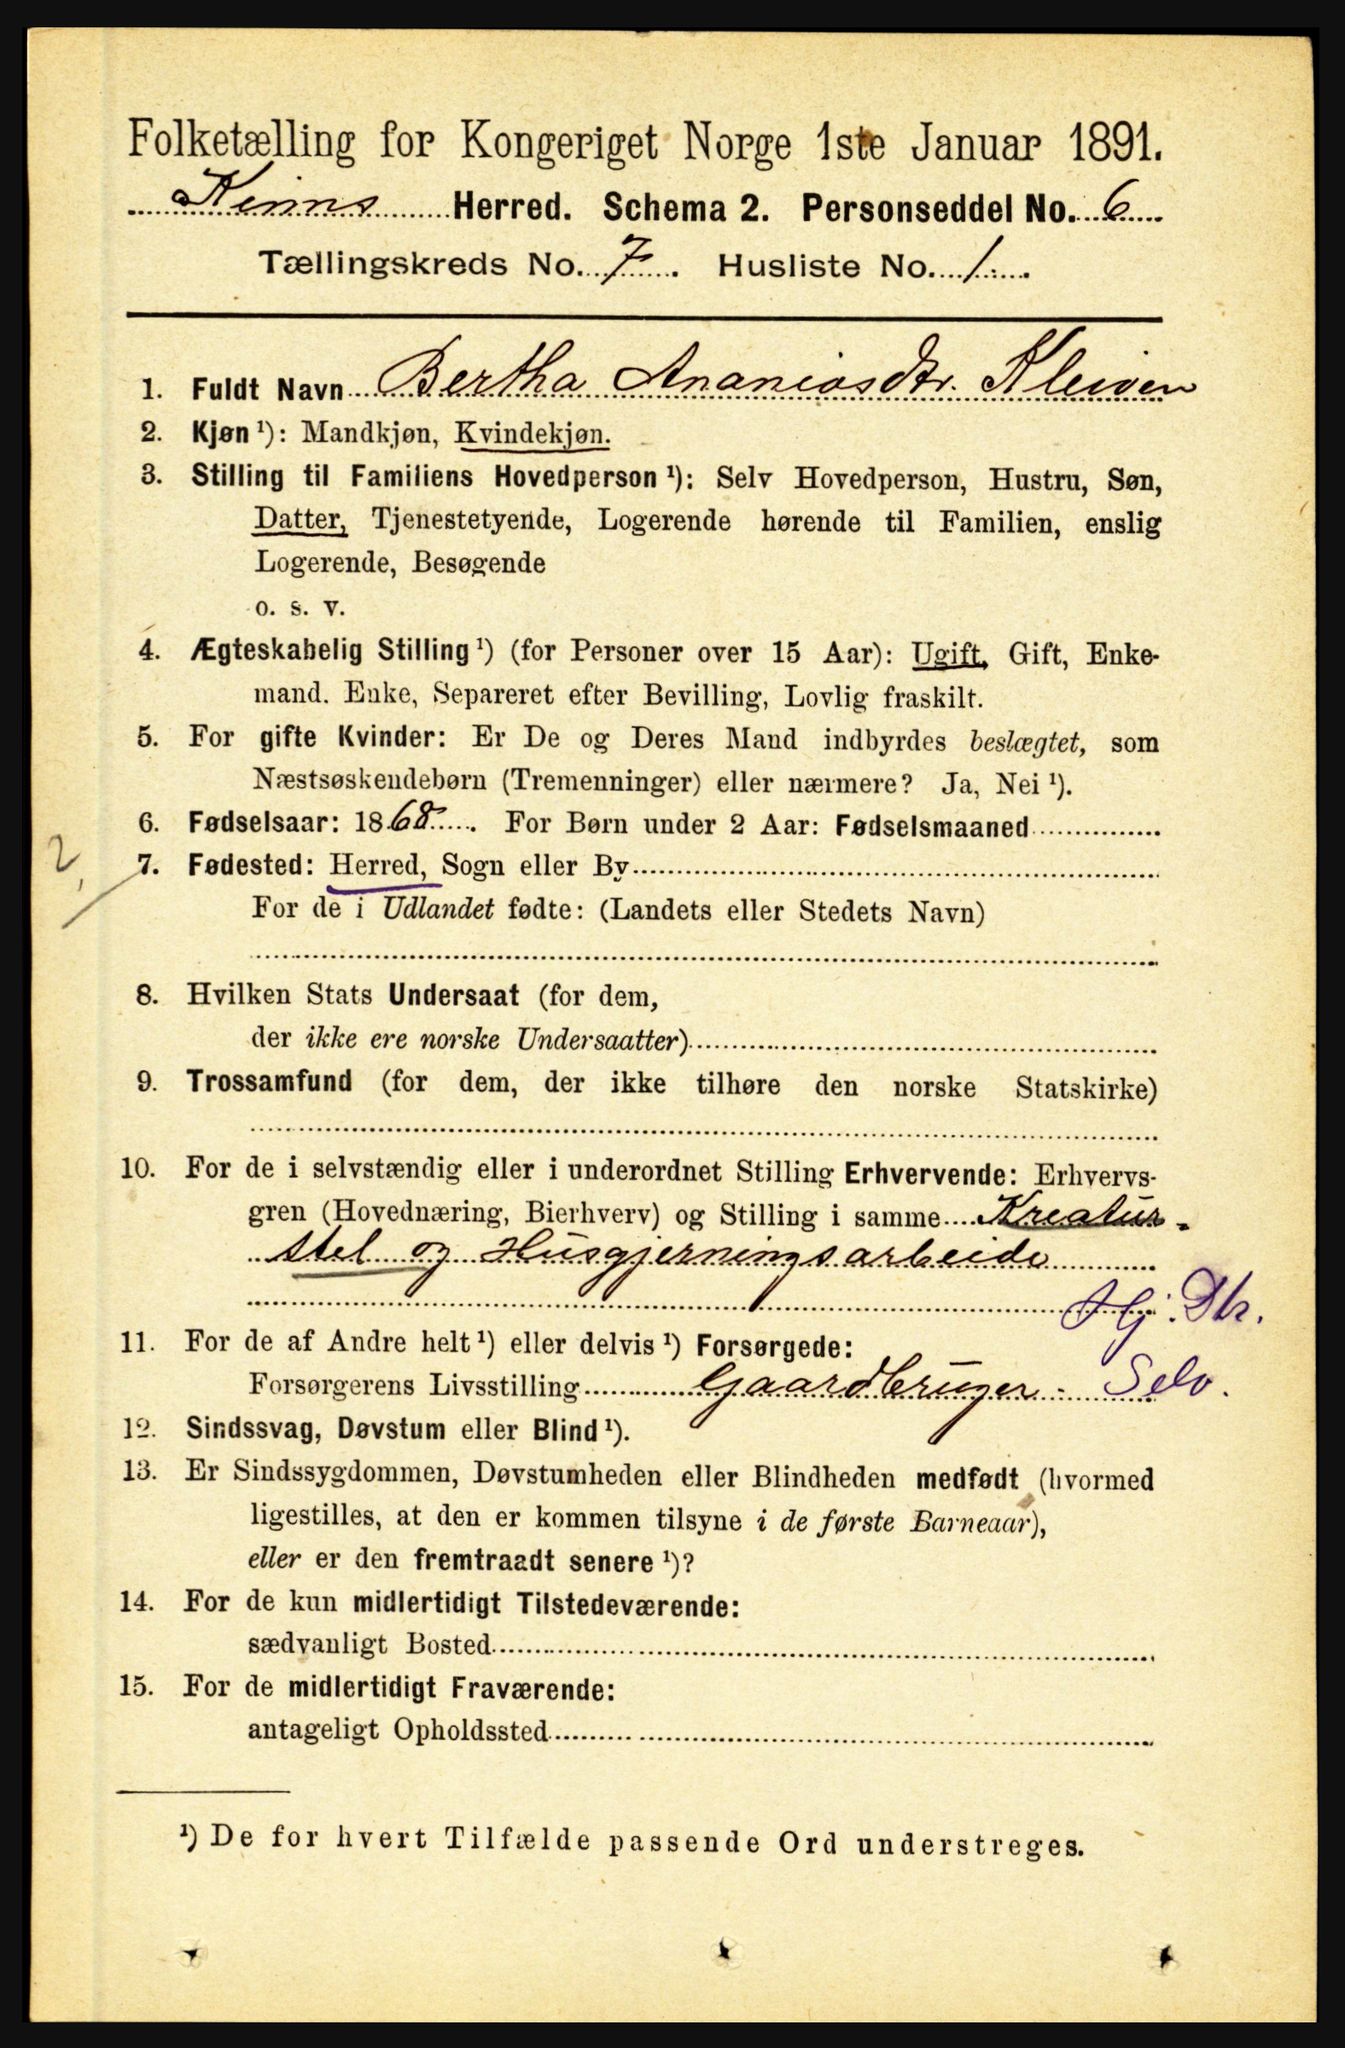 Folketælling for Kongeriget Norge 1ste Januar 1891.
Kinns Herred. Schema 2. Personseddel No. 6
Tællingskreds No. 7. Husliste No. 1.
1. Fuldt Navn Bertha Ananiasdtr. Kleiven
2. Kjøn ¹): Mandkjøn, Kvindekjøn.
3. Stilling til Familiens Hovedperson ¹): Selv Hovedperson, Hustru, Søn,
Datter, Tjenestetyende, Logerende hørende til Familien, enslig
Logerende, Besøgende
o. s. v.
4. Ægteskabelig Stilling ¹) (for Personer over 15 Aar): Ugift, Gift, Enke-
mand. Enke, Separeret efter Bevilling, Lovlig fraskilt.
5. For gifte Kvinder: Er De og Deres Mand indbyrdes beslægtet, som
Næstsøskendebørn (Tremenninger) eller nærmere? Ja, Nei ¹).
6. Fødselsaar: 1868. For Børn under 2 Aar: Fødselsmaaned
2,
7. Fødested: Herred, Sogn eller By
For de i Udlandet fødte: (Landets eller Stedets Navn)
8. Hvilken Stats Undersaat (for dem,
der ikke ere norske Undersaatter)
9. Trossamfund (for dem, der ikke tilhøre den norske Statskirke)
10. For de i selvstændig eller i underordnet Stilling Erhvervende: Erhvervs-
gren (Hovednæring, Bierhverv) og Stilling i samme Kreatur-
stel og Husgjerningsarbeide
Hj. Dtr.
11. For de af Andre helt ¹) eller delvis ¹) Forsørgede:
Forsørgerens Livsstilling Gaardbruger. Selv.
12. Sindssvag, Døvstum eller Blind ¹).
13. Er Sindssygdommen, Døvstumheden eller Blindheden medfødt (hvormed
ligestilles, at den er kommen tilsyne i de første Barneaar),
eller er den fremtraadt senere ¹)?
14. For de kun midlertidigt Tilstedeværende:
sædvanligt Bosted
15. For de midlertidigt Fraværende:
antageligt Opholdssted
¹) De for hvert Tilfælde passende Ord understreges.